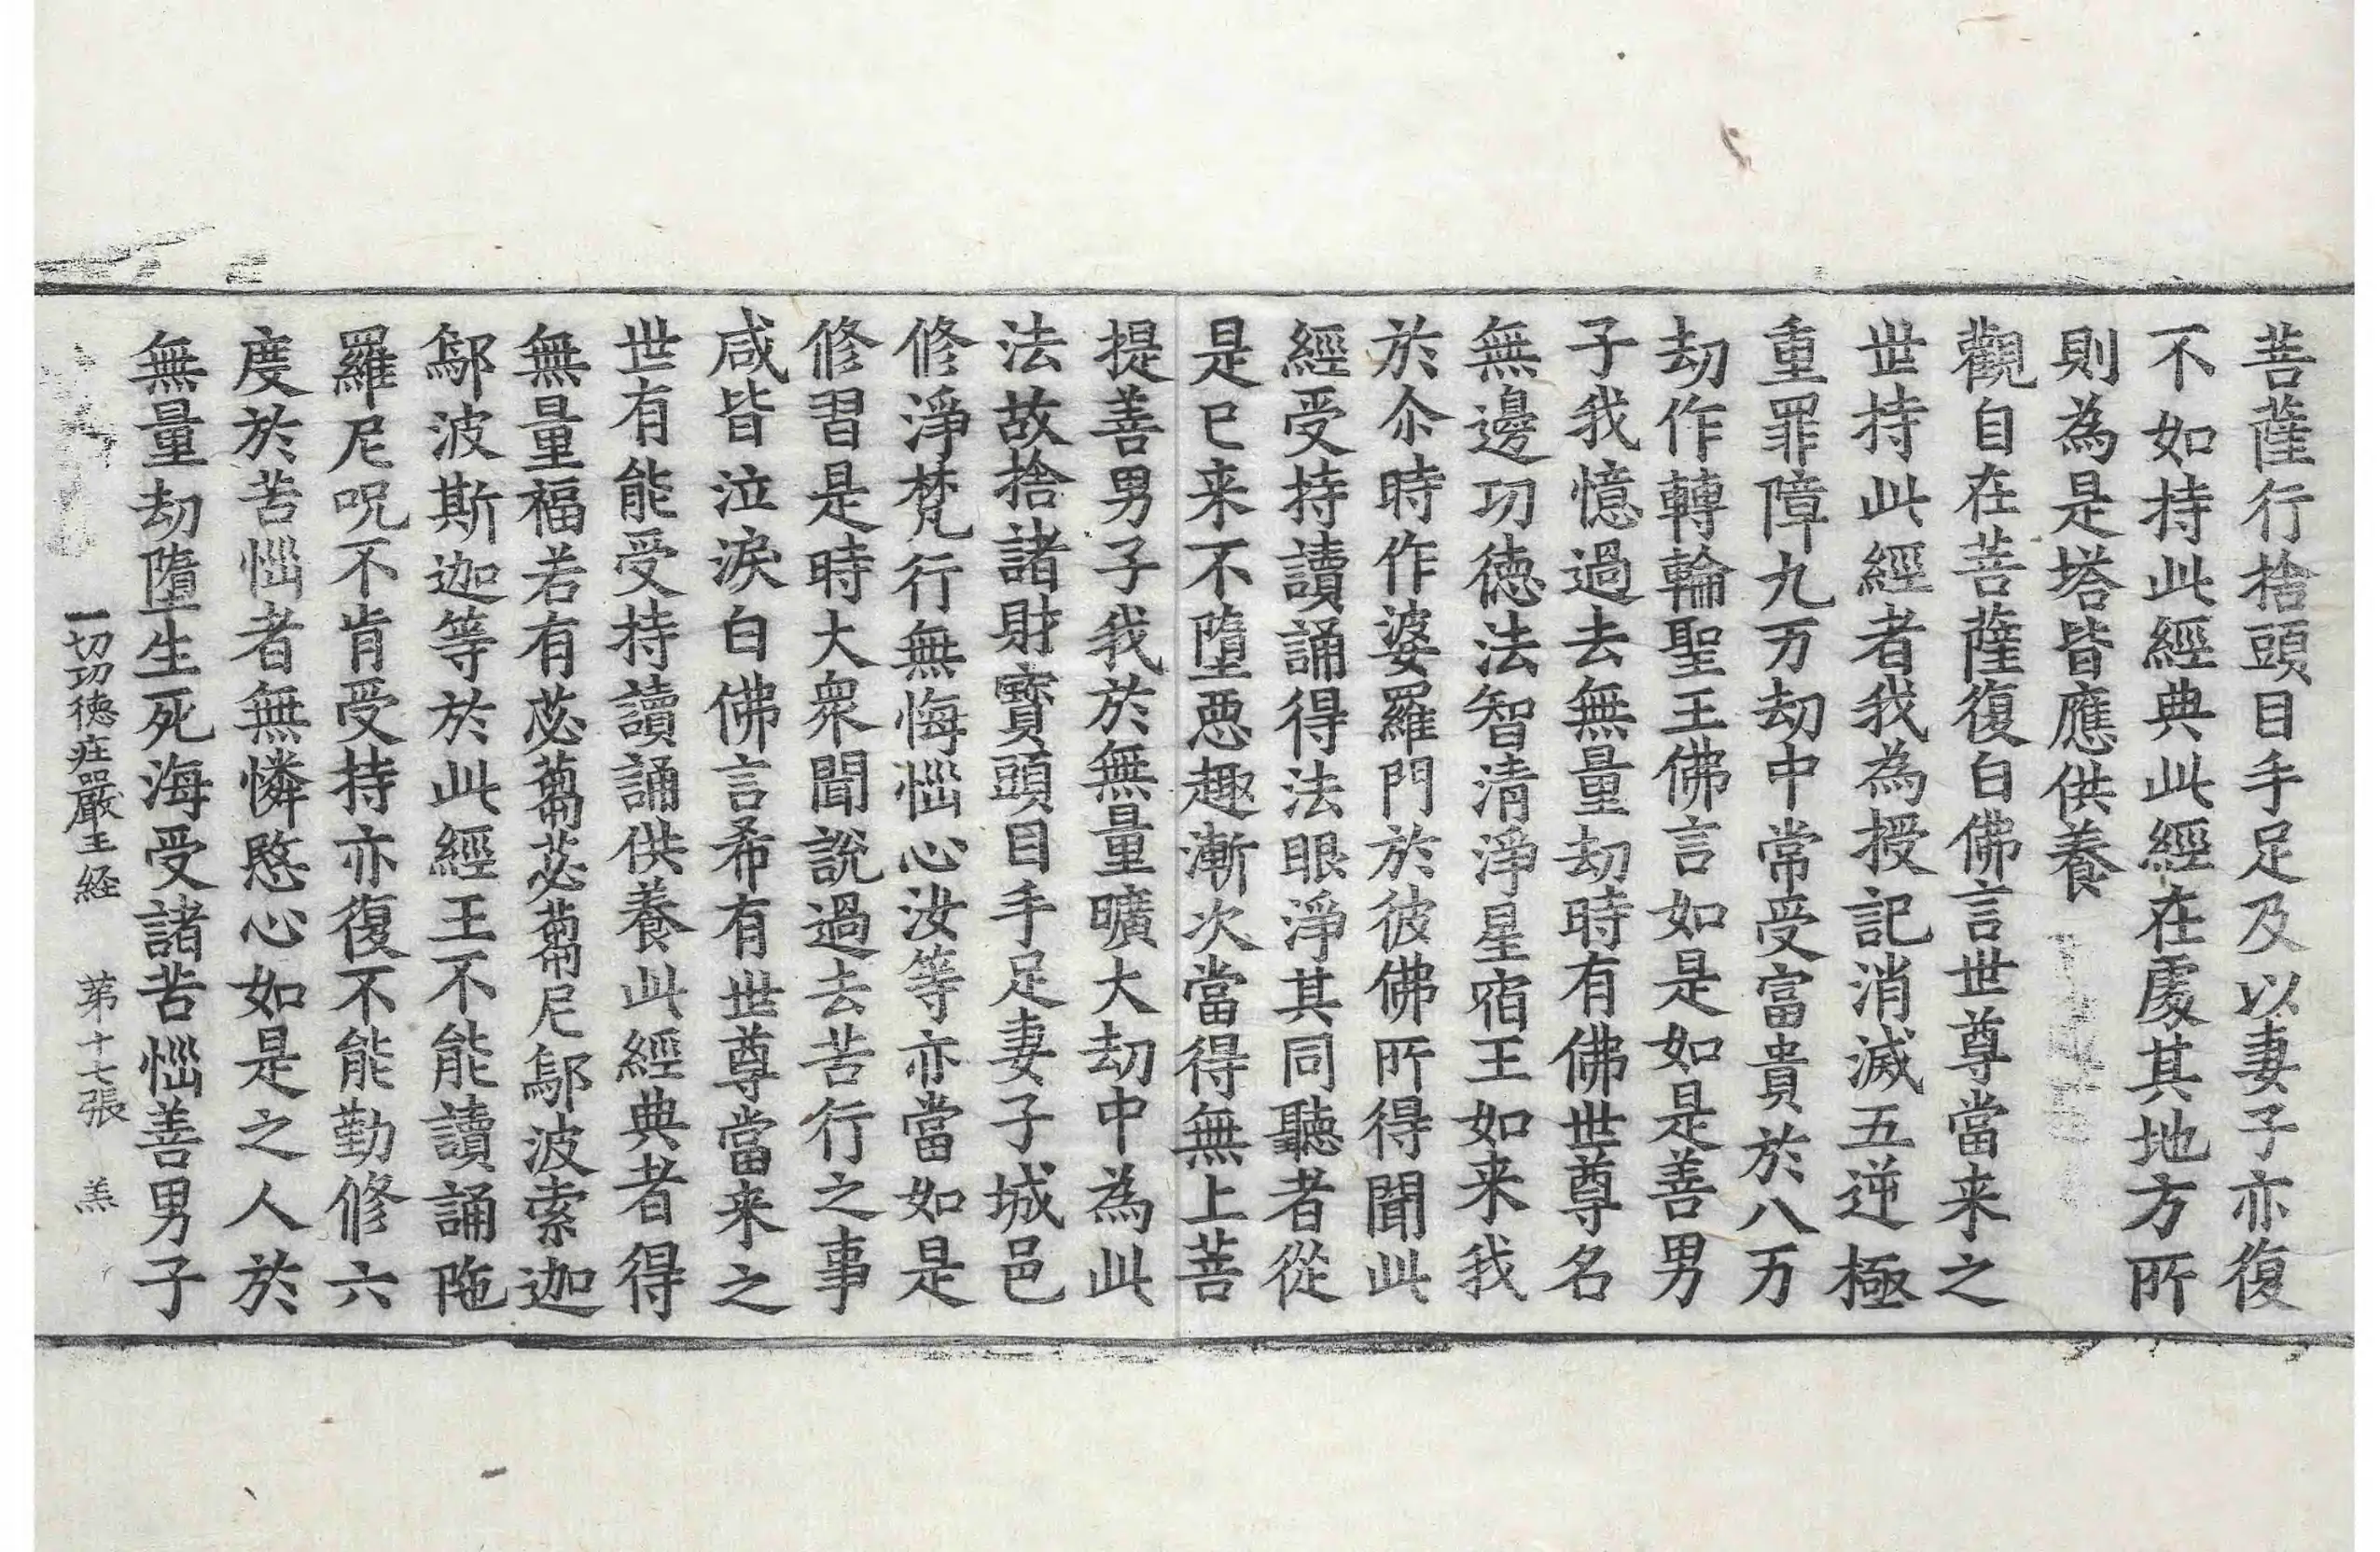 菩薩行捨頭目手足及以妻子亦復
不如持此經典此經在處其地方所
則為是塔皆應供養
觀自在菩薩復白佛言世尊當来之
世持此經者我為授記消滅五逆極
重罪障九万劫中常受富貴於八万
劫作轉輪聖王佛言如是如是善男
子我憶過去無量劫時有佛世尊名
無邊功徳法智清淨星宿王如来我
於尒時作婆羅門於彼佛所得聞此
經受持讀誦得法眼淨其同聽者從
是已来不墮悪趣漸次當得無上菩
提善男子我於無量曠大劫中為此
法故捨諸財寳頭目手足妻子城邑
修淨梵行無悔惱心汝等亦當如是
修習是時大衆聞說過去苦行之事
咸皆泣淚白佛言希有世尊當来之
世有能受持讀誦供養此經典者得
無量福若有苾蒭苾蒭尼鄔波索迦
鄔波斯迦等於此經王不能讀誦陁
羅尼呪不肯受持亦復不能勤修六
度於苦惱者無憐愍心如是之人於
無量劫墮生死海受諸苦惱善男子
一切功徳庄嚴王経 苐十七張 羔